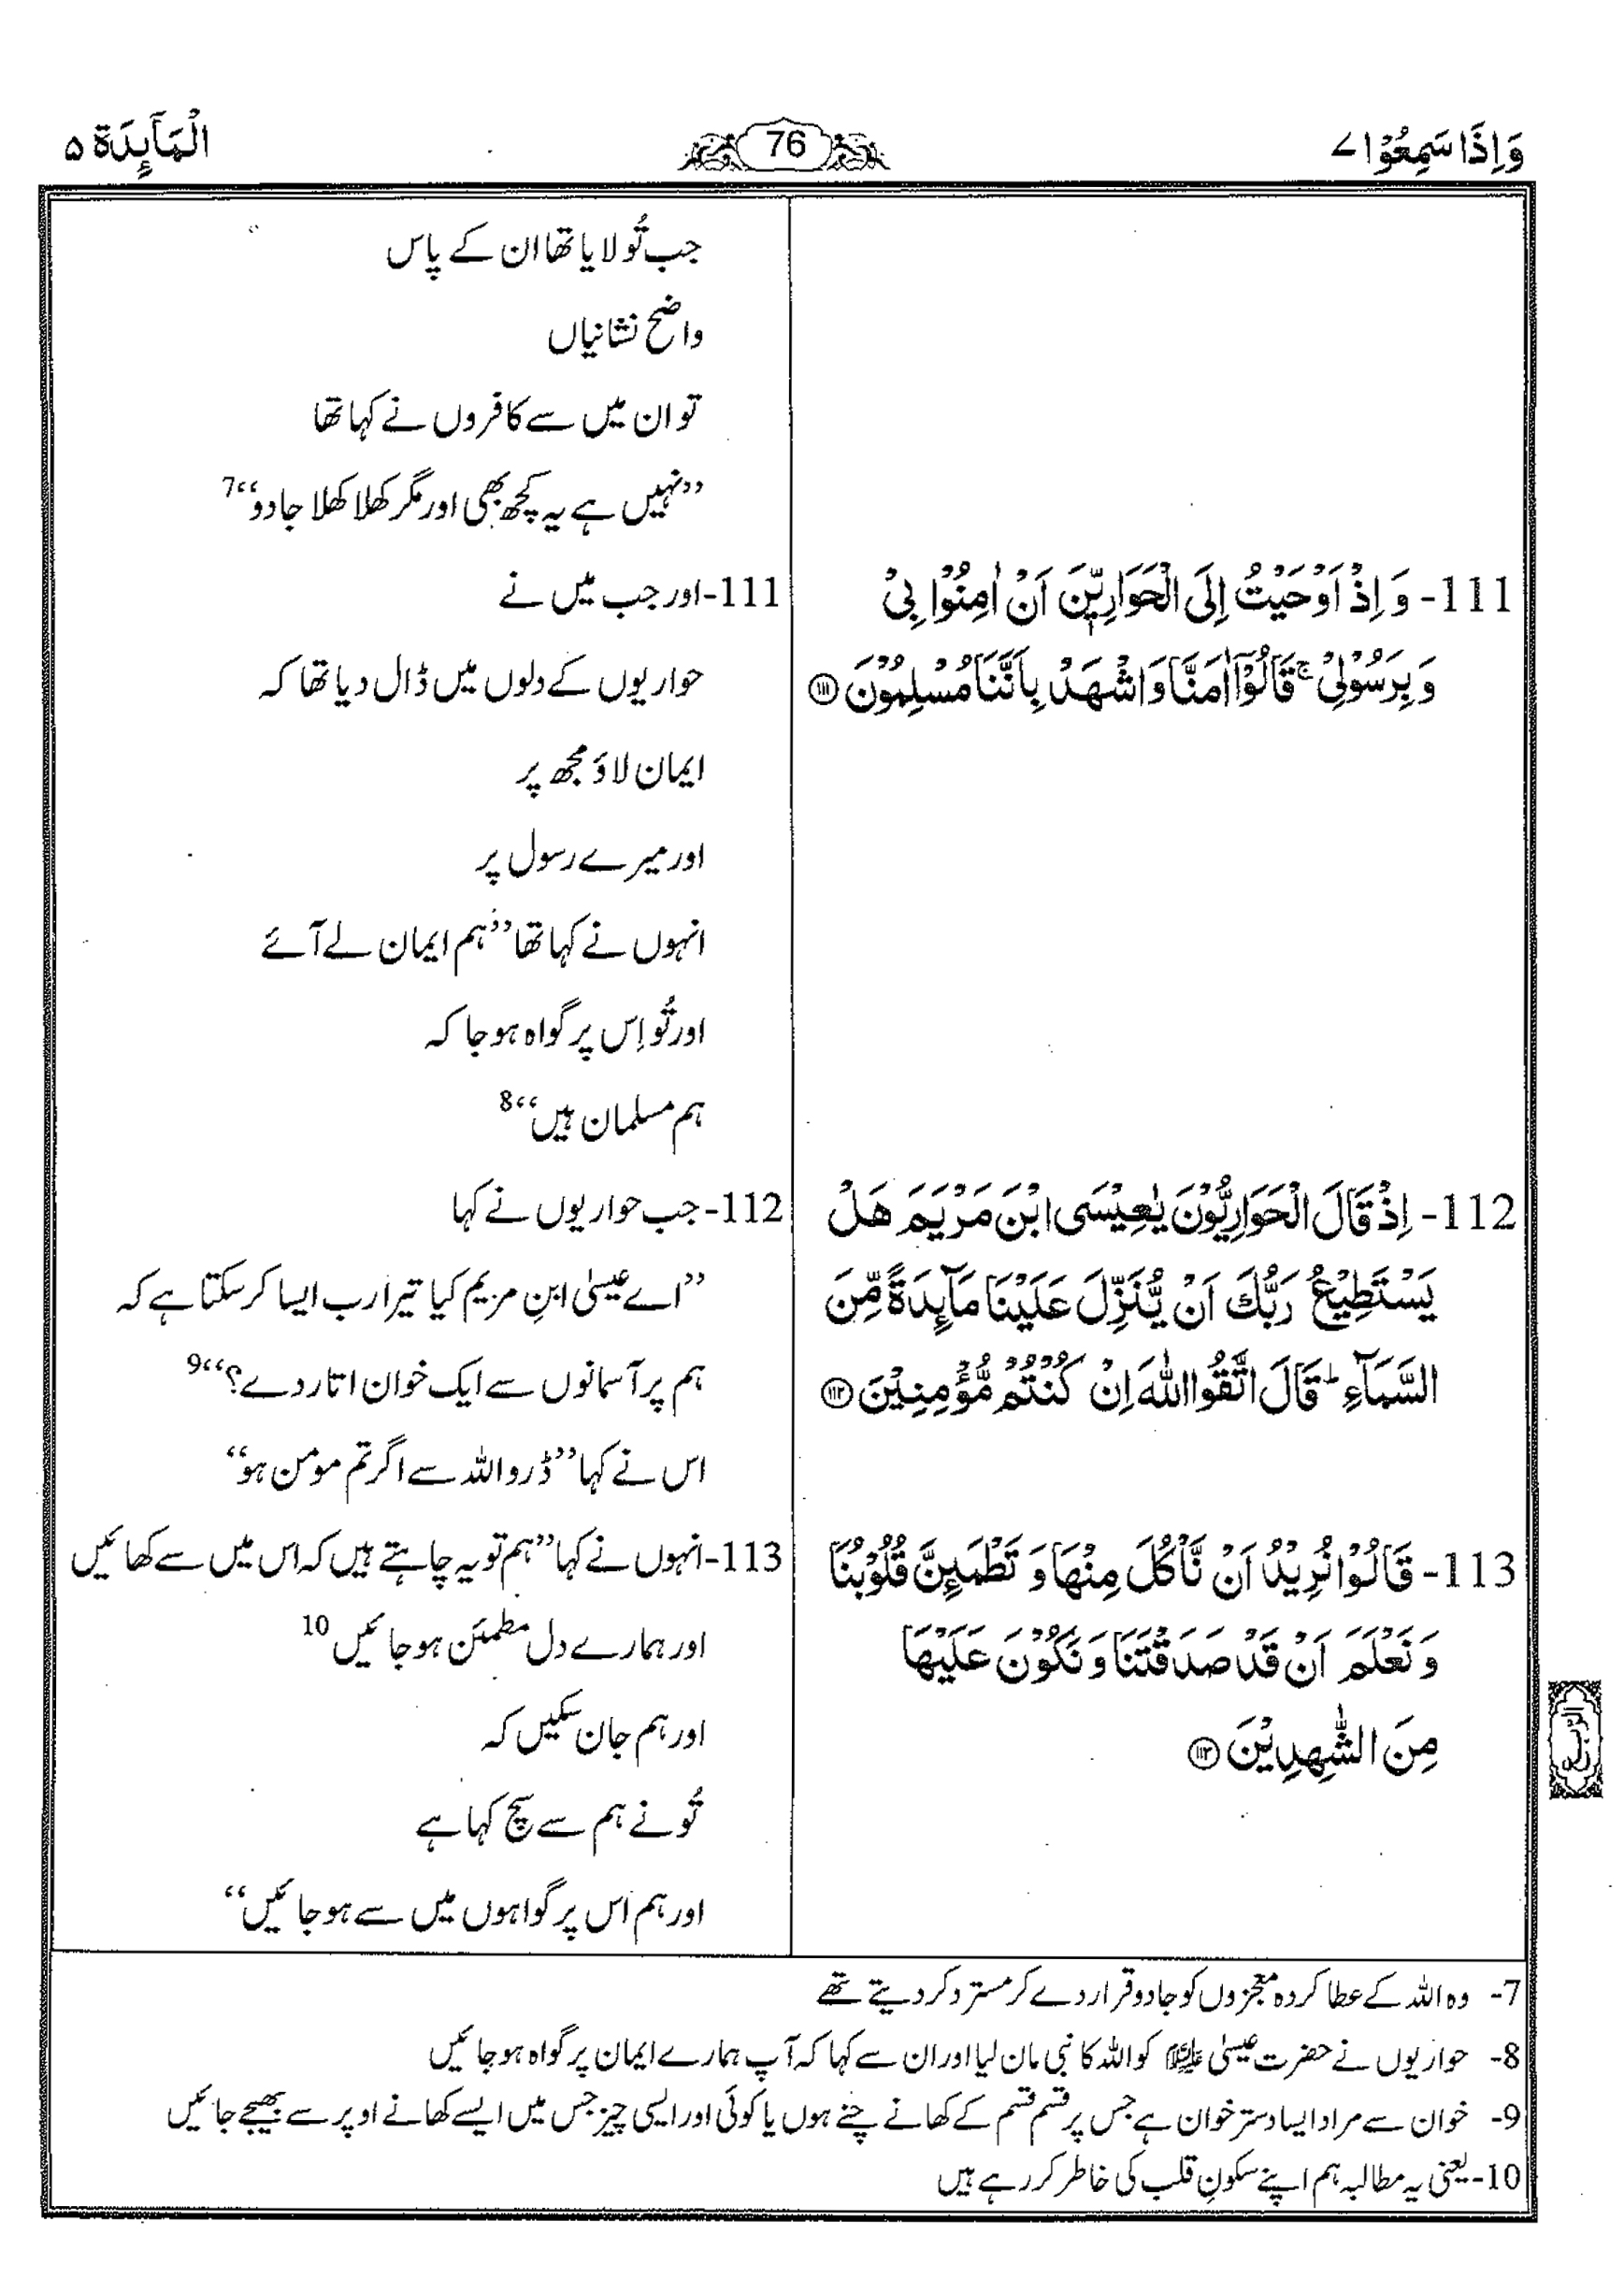 وَاِذَا سَمِعُوْا ۷
76
الْمَآىِٕدَة ۵
111- وَ اِذْ اَوْحَیْتُ اِلَی الْحَوَارِیّٖنَ اَنْ اٰمِنُوْا بِیْ
وَ بِرَسُوْلِیْ ۚ قَالُوْۤا اٰمَنَّا وَ اشْهَدْ بِاَنَّنَا مُسْلِمُوْنَ ﴿۱۱۱﴾
112- اِذْ قَالَ الْحَوَارِیُّوْنَ یٰعِیْسَی ابْنَ مَرْیَمَ هَلْ
یَسْتَطِیْعُ رَبُّكَ اَنْ یُّنَزِّلَ عَلَیْنَا مَآىِٕدَةً مِّنَ
السَّمَآءِ ؕ قَالَ اتَّقُوا اللّٰهَ اِنْ كُنْتُمْ مُّؤْمِنِیْنَ ﴿۱۱۲﴾
113- قَالُوْا نُرِیْدُ اَنْ نَّاْكُلَ مِنْهَا وَ تَطْمَىِٕنَّ قُلُوْبُنَا
وَ نَعْلَمَ اَنْ قَدْ صَدَقْتَنَا وَ نَكُوْنَ عَلَیْهَا
مِنَ الشّٰهِدِیْنَ ﴿۱۱۳﴾
جب تُو لایا تھا ان کے پاس
واضح نشانیاں
تو ان میں سے کافروں نے کہا تھا
’’نہیں ہے یہ کچھ بھی اور مگر کھلا کھلا جادو‘‘7
111-اور جب میں نے
حواریوں کے دلوں میں ڈال دیا تھا کہ
ایمان لاؤ مجھ پر
اور میرے رسول پر
انہوں نے کہا تھا ’’ہم ایمان لے آئے
اور تُو اِس پر گواہ ہو جا کہ
ہم مسلمان ہیں‘‘8
112-جب حواریوں نے کہا
’’اے عیسیٰ ابنِ مریم کیا تیرا رب ایسا کر سکتا ہے کہ
ہم پر آسمانوں سے ایک خوان اتار دے؟‘‘9
اس نے کہا ’’ڈرو اللہ سے اگر تم مومن ہو‘‘
113-انہوں نے کہا ’’ہم تو یہ چاہتے ہیں کہ اس میں سے کھائیں
اور ہمارے دل مطمئن ہو جائیں10
اور ہم جان سکیں کہ
تُو نے ہم سے سچ کہا ہے
اور ہم اس پر گواہوں میں سے ہو جائیں‘‘
الربع
7- وہ اللہ کے عطا کردہ معجزوں کو جادو قرار دے کر مسترد کر دیتے تھے
8- حواریوں نے حضرت عیسیٰ علیہ السلام کو اللہ کا نبی مان لیا اور ان سے کہا کہ آپ ہمارے ایمان پر گواہ ہو جائیں
9- خوان سے مراد ایسا دستر خوان ہے جس پر قسم قسم کے کھانے چنے ہوں یا کوئی اور ایسی چیز جس میں ایسے کھانے اوپر سے بھیجے جائیں
10-یعنی یہ مطالبہ ہم اپنے سکونِ قلب کی خاطر کر رہے ہیں